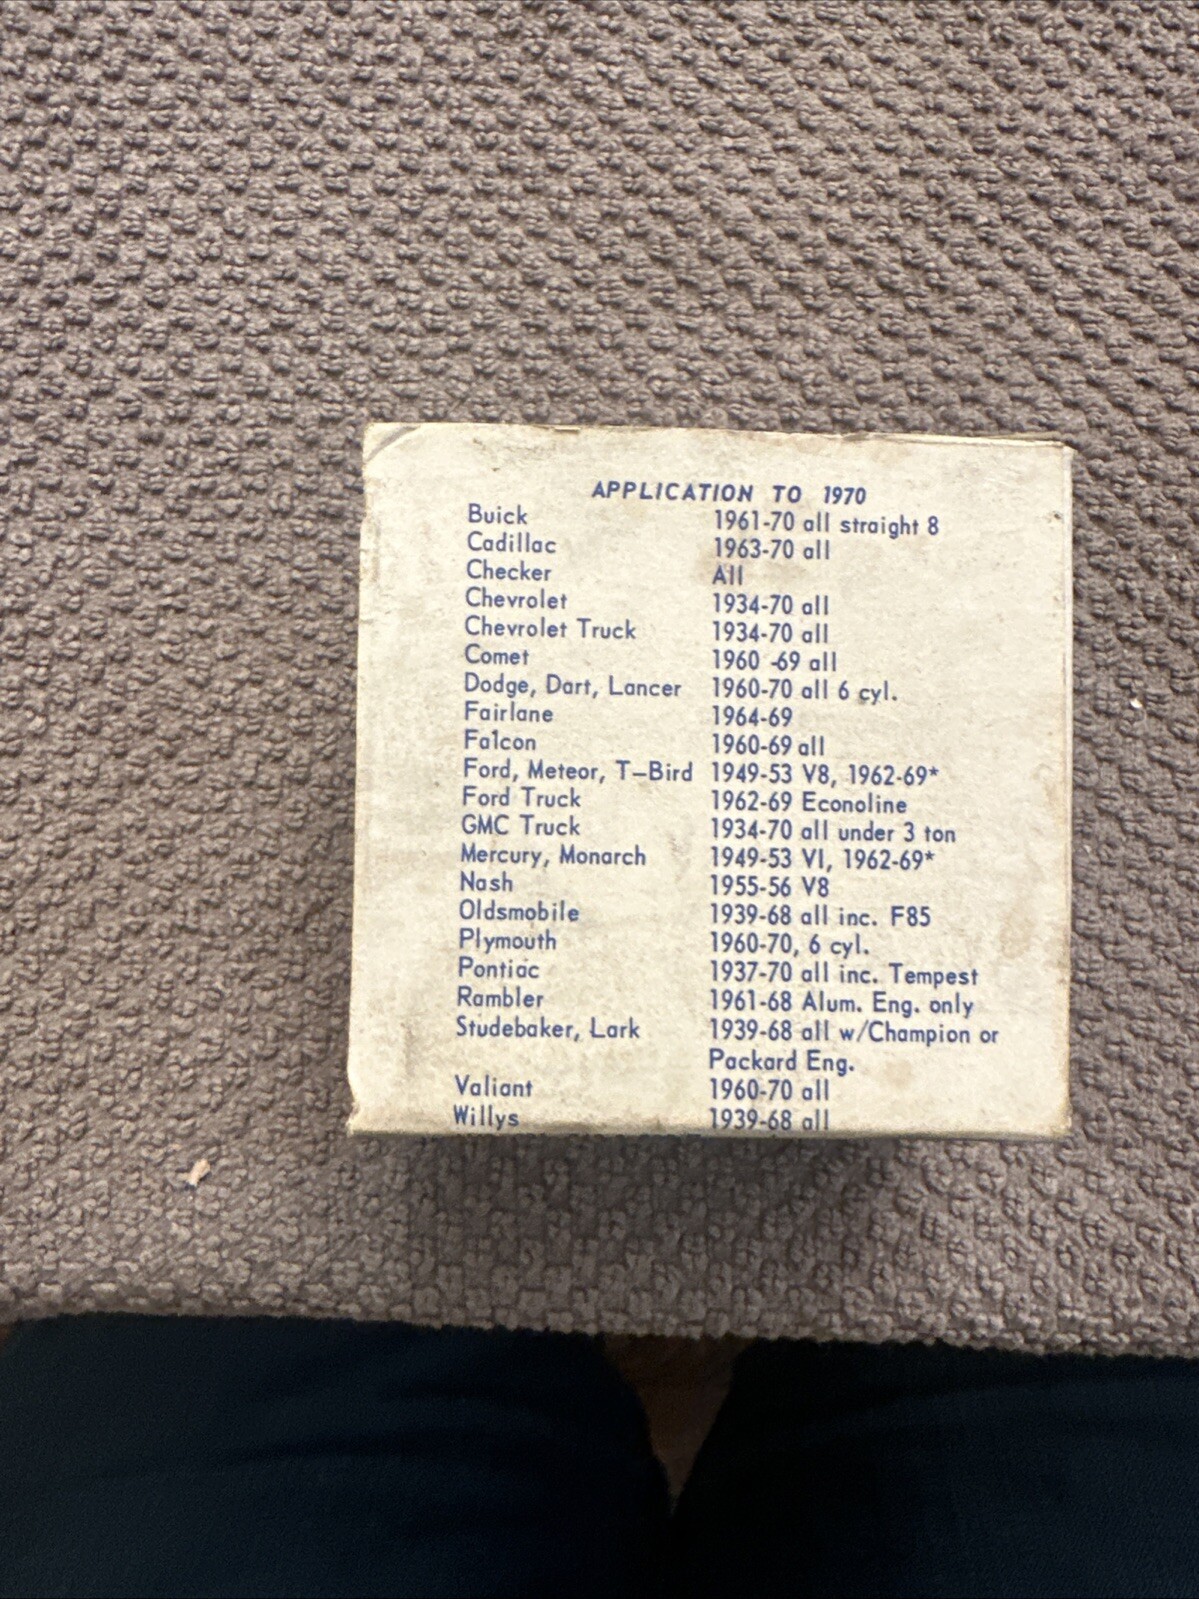 APPLICATION TO 1970
Buick 1961-70 all straight 8
Cadillac 1963-70 all
Checker All
Chevrolet 1934-70 all
Chevrolet Truck 1934-70 all
Comet 1960 -69 all
Dodge, Dart, Lancer 1960-70 all 6 cyl.
Fairlane 1964-69
Falcon 1960-69 all
Ford, Meteor, T-Bird 1949-53 V8, 1962-69*
Ford Truck 1962-69 Econoline
GMC Truck 1934-70 all under 3 ton
Mercury, Monarch 1949-53 VI, 1962-69*
Nash 1955-56 V8
Oldsmobile 1939-68 all inc. F85
Plymouth 1960-70, 6 cyl.
Pontiac 1937-70 all inc. Tempest
Rambler 1961-68 Alum. Eng. only
Studebaker, Lark 1939-68 all w/Champion or
Packard Eng.
Valiant 1960-70 all
Willys 1939-68 all